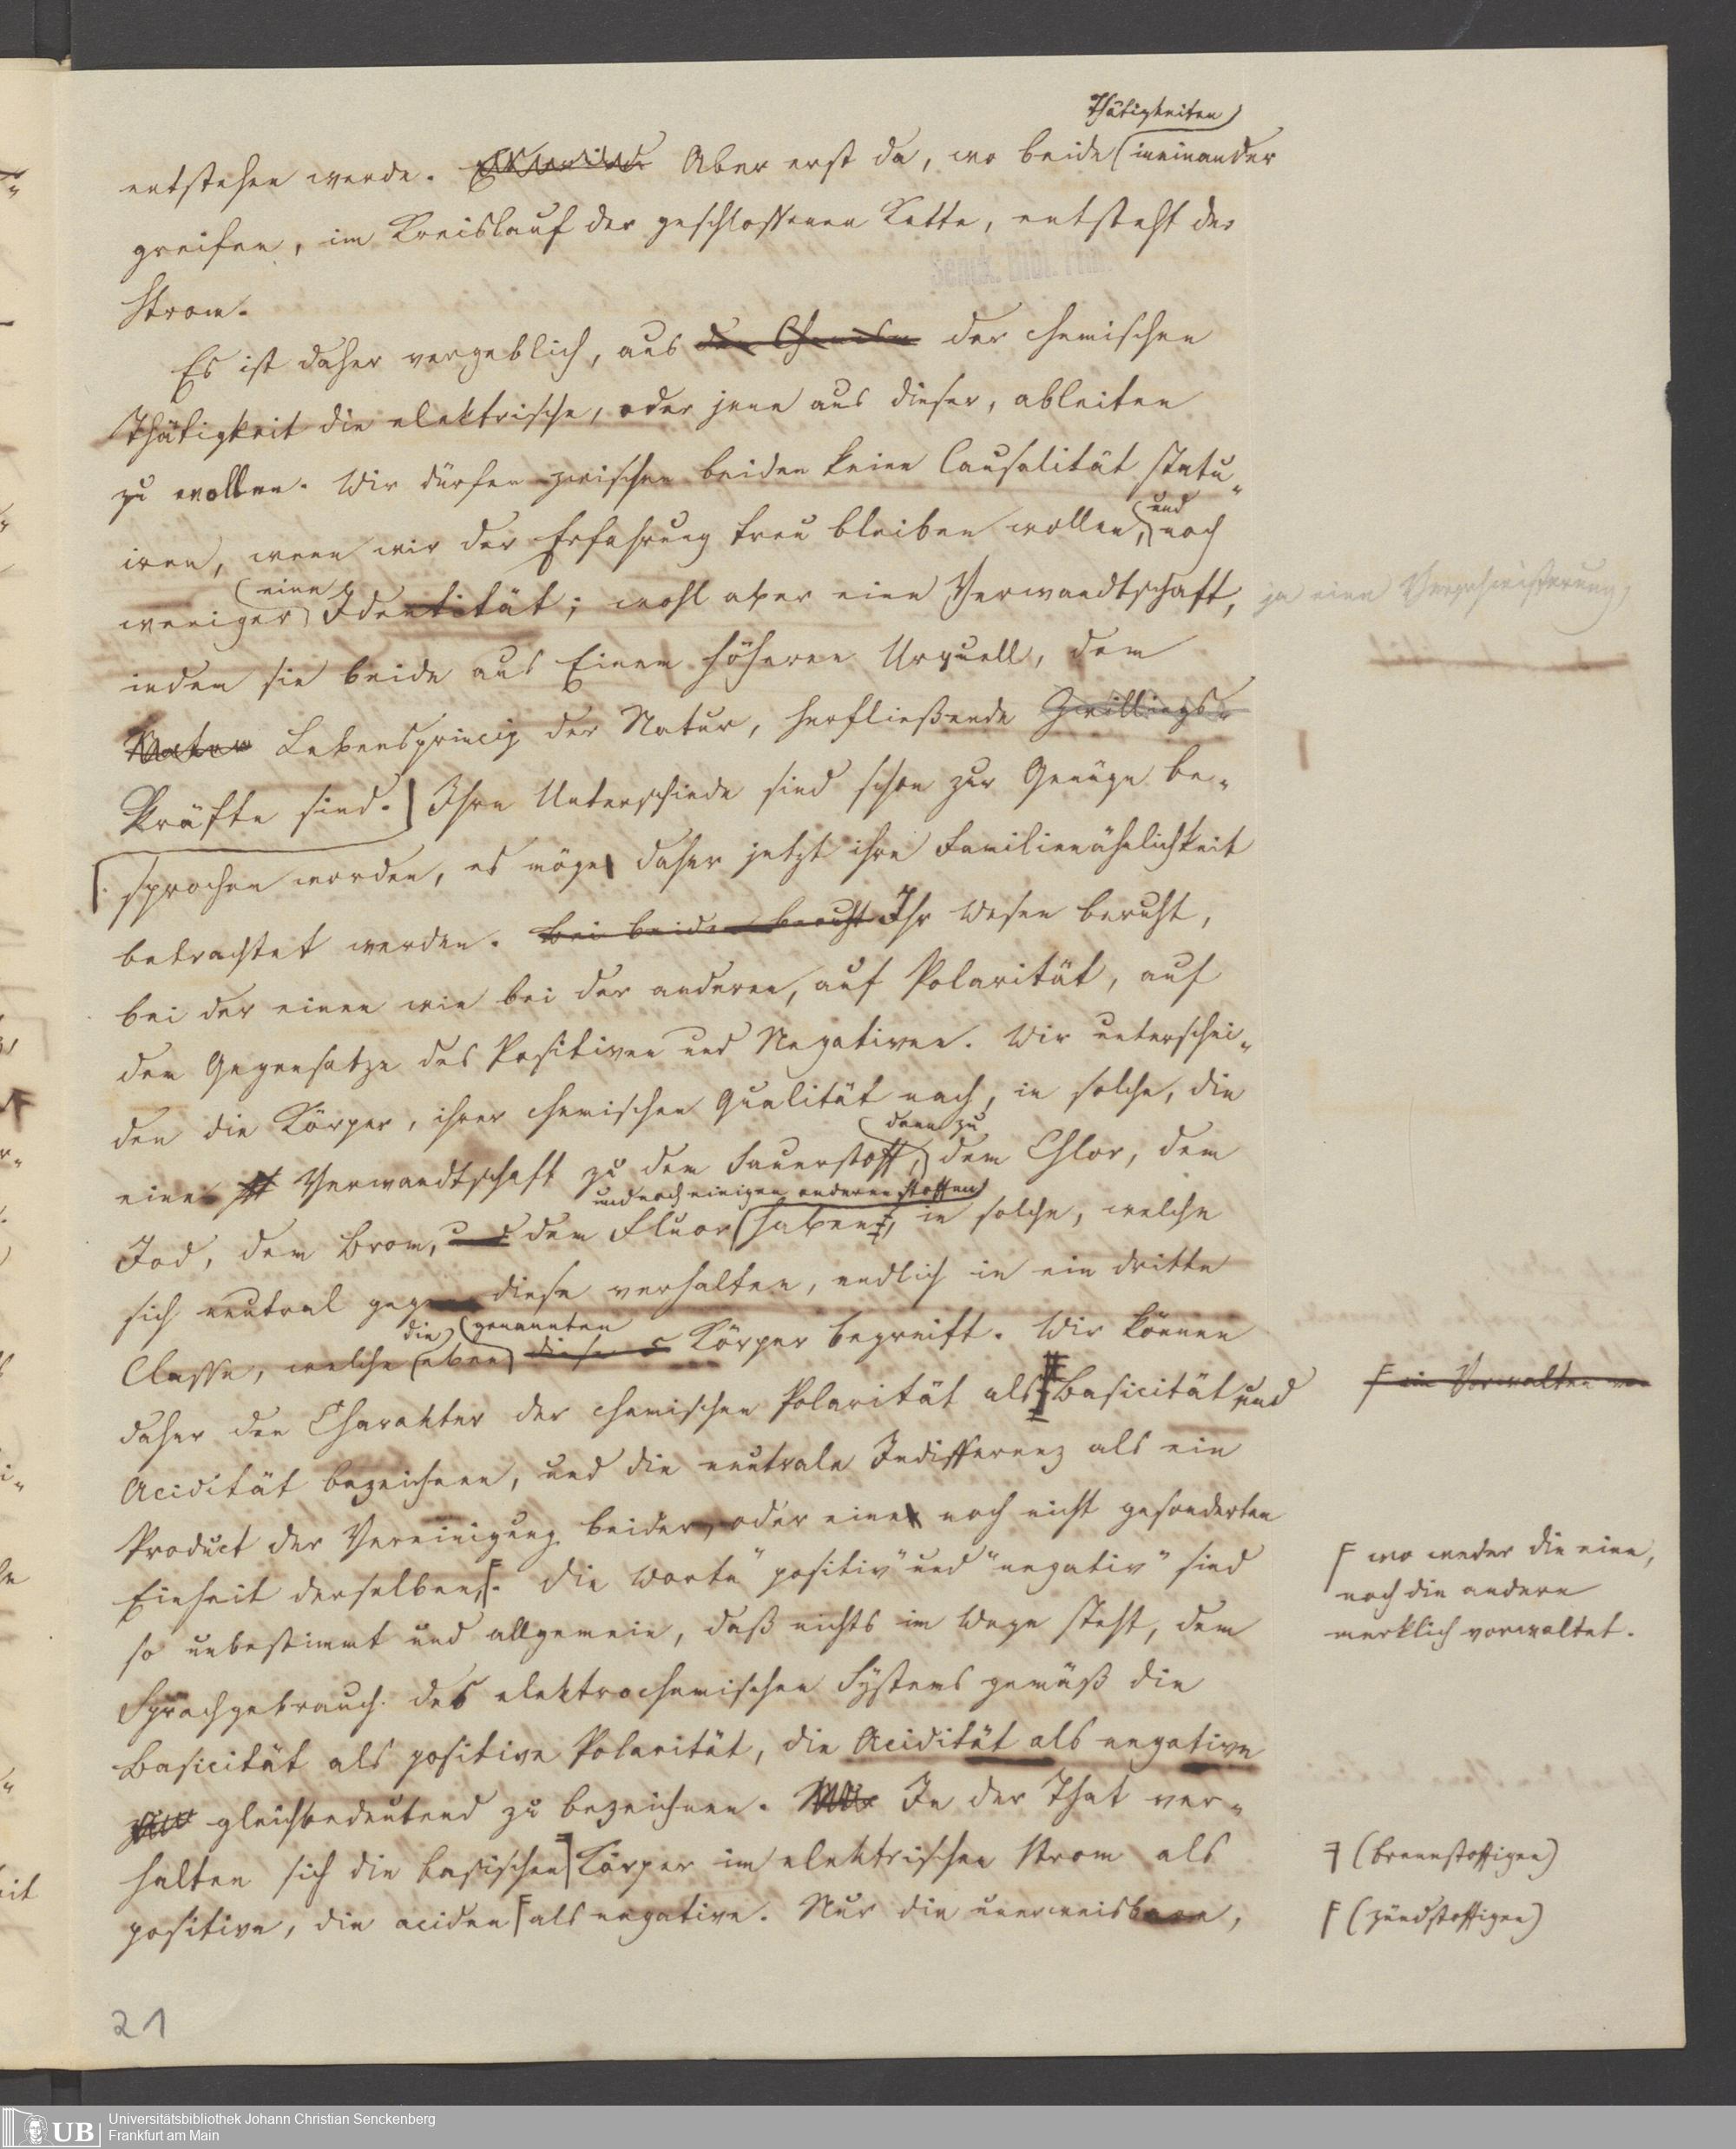 Thätigkeiten
entstehen werde. Aber erst da, wo beide ineinander
greifen, im Kreislauf der geschlossenen Kette, entsteht der
Strom.
Es ist daher vergeblich, aus der chemischen
Thätigkeit die elektrische, oder jene aus dieser, ableiten
zu wollen. Wir dürfen zwischen beiden keine Causalität statu-
und
iren, wenn wir der Erfahrung treu bleiben wollen, noch
eine
weniger Identität; wohl aber eine Verwandtschaft, ja eine Vergeschwisterung,
indem sie beide aus Einem höheren Urquell, dem
Natur Lebensprincip der Natur, herfließende Zwillings-
kräfte sind. Ihre Unterschiede sind schon zur Genüge be-
sprochen worden, es möge daher jetzt ihre Familienähnlichkeit
betrachtet werden. bei beiden beruht Ihr Wesen beruht,
bei der einen wie bei der anderen, auf Polarität, auf
dem Gegensatze des Positiven und Negativen. Wir unterschei-
den die Körper, ihrer chemischen Qualität nach, in solche, die
dann zu
eine Verwandtschaft zu dem Sauerstoff, dem Chlor, dem
und noch einigen anderen Stoffen
Jod, dem Brom, und dem Fluor haben, in solche, welche
sich neutral gegen diese verhalten, endlich in ein dritte
die genannten
Classe, welche eben diese Körper begreift. Wir können
daher den Charakter der chemischen Polarität als Basicität und
ein Vorwalten von
Acidität bezeichnen, und die neutrale Indifferenz als ein
Product der Vereinigung beider, oder eine noch nicht gesonderten
Einheit derselben. Die Worte "positiv" und "negativ" sind
wo weder die eine,
noch die andere
merklich vorwaltet.
so unbestimmt und allgemein, daß nichts im Wege steht, dem
Sprachgebrauch des elektrochemischen Systems gemäß die
Basicität als positive Polarität, die Acidität als negative
gleichbedeutend zu bezeichnen. In der That ver-
halten sich die basischen Körper im elektrischen Strom als
(brennstoffigen)
positive, die aciden als negative. Nur die unerweisbare,
(zündstoffigen)
21
UB
Universitätsbibliothek Johann Christian Senckenberg
Frankfurt am Main